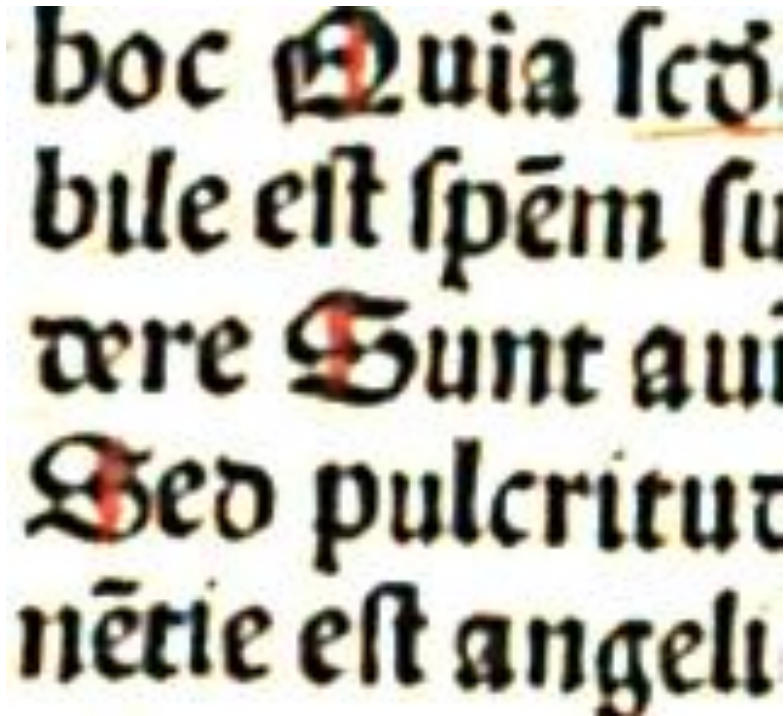 hoc Quia ſcđ
bile eſt ſpēm ſu
dere Sunt aui
Sed pulcritud
nētie eſt angeli